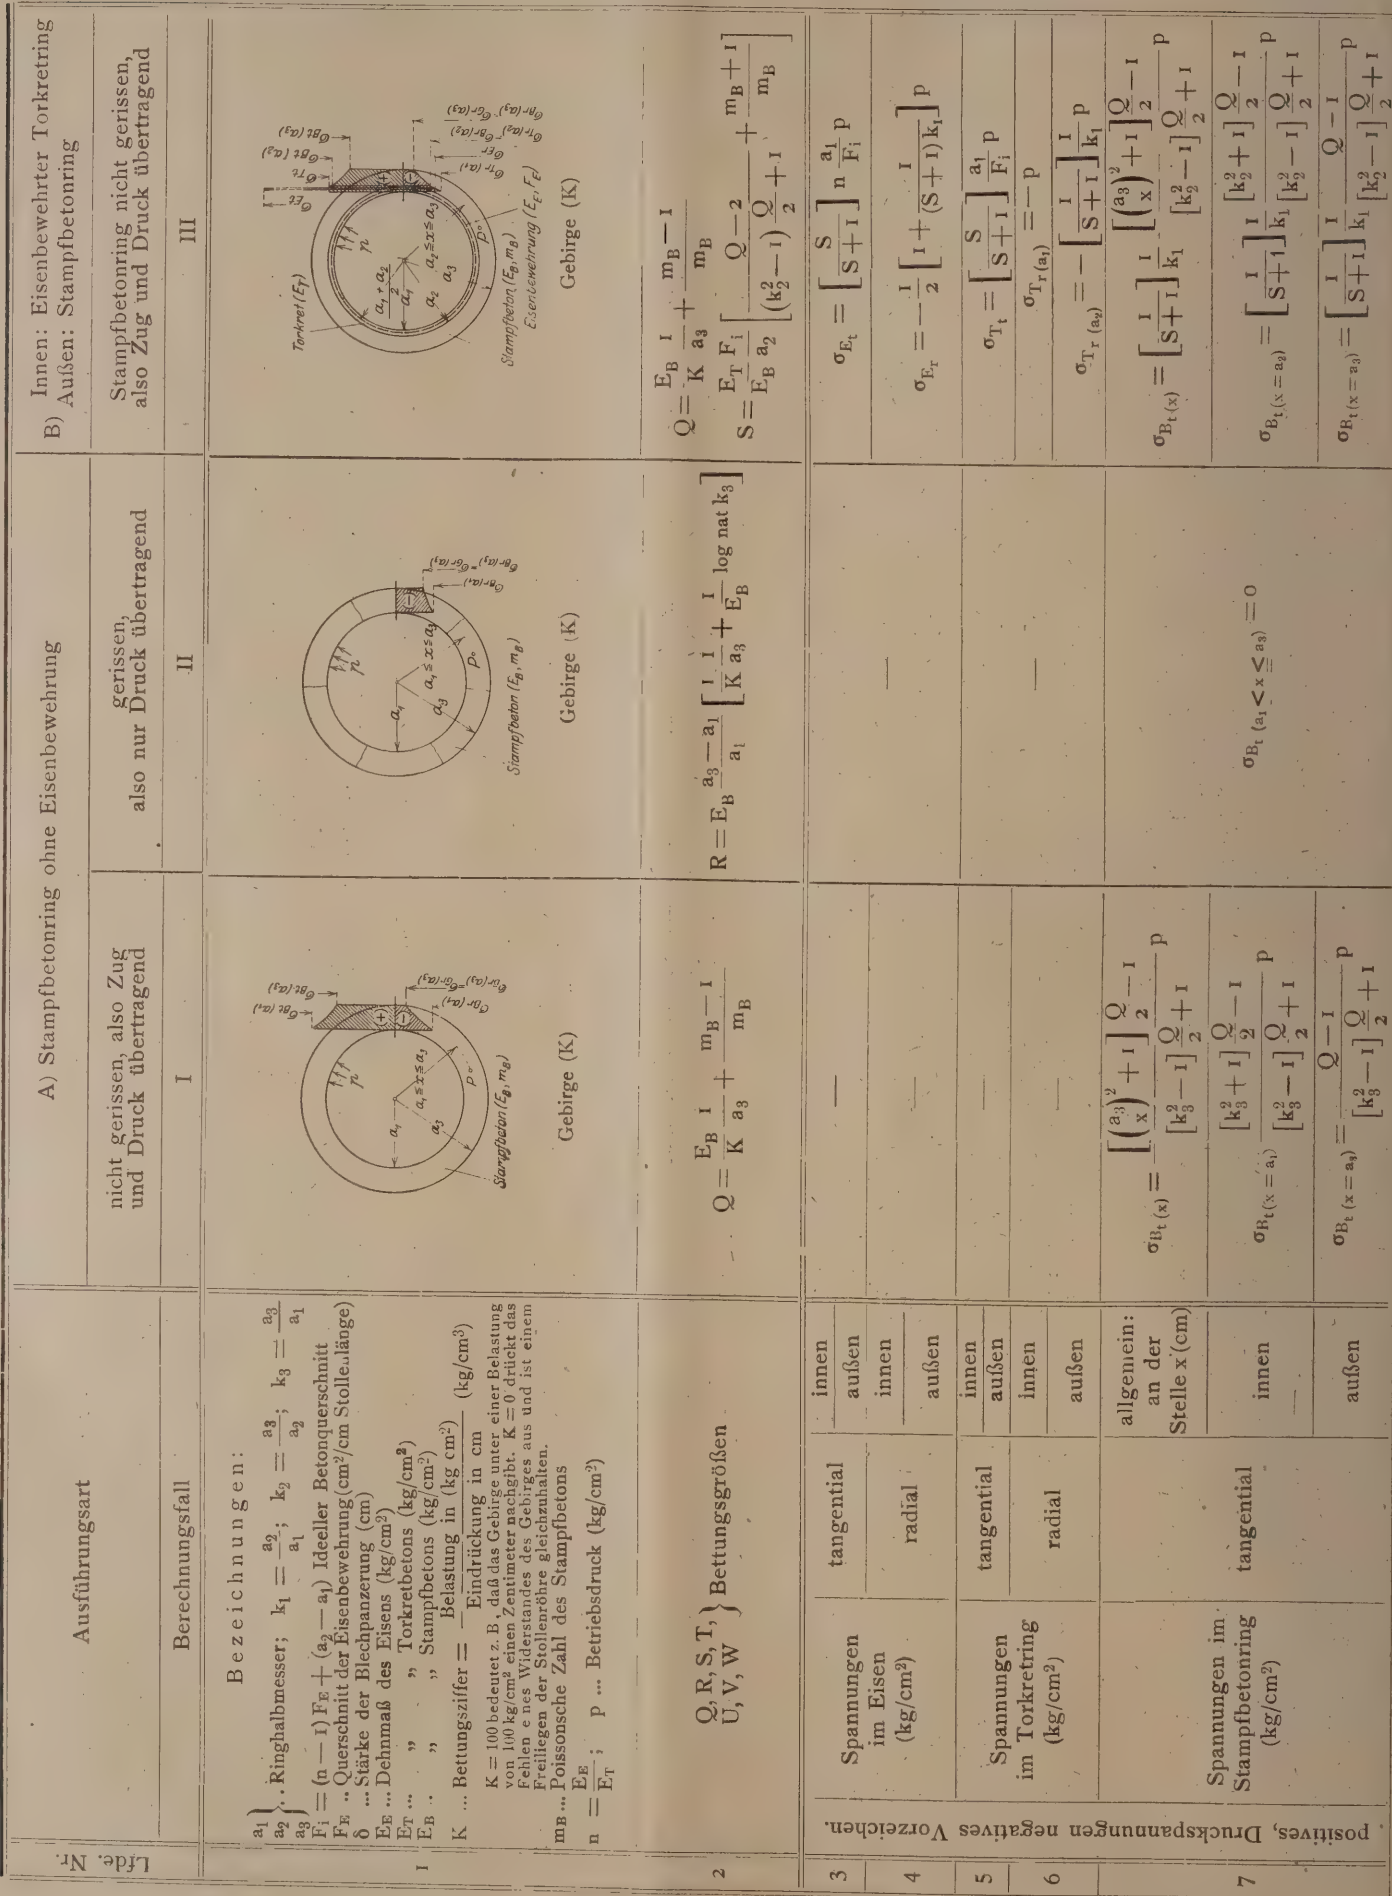 Lfde. Nr.
Ausführungsart
A) Stampfbetonring ohne Eisenbewehrung
B) Innen: Eisenbewehrter Torkretring
Außen: Stampfbetonring
nicht gerissen, also Zug
und Druck übertragend
gerissen,
also nur Druck übertragend
Stampfbetonring nicht gerissen,
also Zug und Druck übertragend
Berechnungsfall
I
II
III
1
Bezeichnungen:
a₁ a₂ a₃ } .. Ringhalbmesser; k₁ = a₂/a₁; k₂ = a₃/a₂; k₃ = a₃/a₁
Fᵢ = (n — 1) F_E + (a₂ — a₁) Ideeller Betonquerschnitt
F_E .. Querschnitt der Eisenbewehrung (cm²/cm Stollenlänge)
δ ... Stärke der Blechpanzerung (cm)
E_E ... Dehnmaß des Eisens (kg/cm²)
E_T ... „ „ Torkretbetons (kg/cm²)
E_B .. „ „ Stampfbetons (kg/cm²)
K ... Bettungsziffer = Belastung in (kg cm²) / Eindrückung in cm (kg/cm³)
K = 100 bedeutet z. B., daß das Gebirge unter einer Belastung
von 100 kg/cm² einen Zentimeter nachgibt. K = 0 drückt das
Fehlen e nes Widerstandes des Gebirges aus und ist einem
Freiliegen der Stollenröhre gleichzuhalten.
m_B ... Poissonsche Zahl des Stampfbetons
n = E_E/E_T; p ... Betriebsdruck (kg/cm²)
σBt (a₁)
σBt (a₃)
p
a₁
a₁ ≦ x ≦ a₃
a₃
p₀
(+)
(—)
σBr (a₃) = σGr (a₃)
σBr (a₁)
Stampfbeton (E_B, m_B)
Gebirge (K)
p
a₁
a₁ ≦ x ≦ a₃
a₃
p₀
(—)
σBr (a₁)
σBr (a₃) = σGr (a₃)
Stampfbeton (E_B, m_B)
Gebirge (K)
Torkret (E_T)
σEt
σTt
σBt (a₂)
σBt (a₃)
p
(a₁ + a₂)/2
a₁
a₂ ≦ x ≦ a₃
a₂
a₃
p₀
(+)
(—)
σTr (a₁)
σEr
σTr (a₂) = σBr (a₂)
σBr (a₃) = σGr (a₃)
Stampfbeton (E_B, m_B)
Eisenbewehrung (E_E, F_E)
Gebirge (K)
2
Q, R, S, T,
U, V, W } Bettungsgrößen
Q = E_B/K 1/a₃ + (m_B — 1)/m_B
R = E_B (a₃ — a₁)/a₁ [1/K 1/a₃ + 1/E_B log nat k₃]
Q = E_B/K 1/a₃ + (m_B — 1)/m_B
S = E_T/E_B Fᵢ/a₂ [(Q — 2)/((k₂² — 1) Q/2 + 1) + (m_B + 1)/m_B]
positives, Druckspannungen negatives Vorzeichen.
3
Spannungen
im Eisen
(kg/cm²)
tangential
innen
außen
—
σ_Et = [S/(S + 1)] n a₁/Fᵢ p
4
radial
innen
außen
—
—
σ_Er = — 1/2 [1 + 1/((S + 1) k₁)] p
5
Spannungen
im Torkretring
(kg/cm²)
tangential
innen
außen
—
σ_Tt = [S/(S + 1)] a₁/Fᵢ p
6
radial
innen
—
—
σ_Tr (a₁) = — p
außen
σ_Tr (a₂) = — [1/(S + 1)] 1/k₁ p
7
Spannungen im
Stampfbetonring
(kg/cm²)
tangential
allgemein:
an der
Stelle x (cm)
σ_Bt (x) = ([(a₃/x)² + 1] Q/2 — 1)/([k₃² — 1] Q/2 + 1) p
σ_Bt (a₁ < x ≦ a₃) = 0
σ_Bt (x) = [1/(S + 1)] 1/k₁ ([(a₃/x)² + 1] Q/2 — 1)/([k₂² — 1] Q/2 + 1) p
innen
σ_Bt (x = a₁) = ([k₃² + 1] Q/2 — 1)/([k₃² — 1] Q/2 + 1) p
σ_Bt (x = a₂) = [1/(S + 1)] 1/k₁ ([k₂² + 1] Q/2 — 1)/([k₂² — 1] Q/2 + 1) p
außen
σ_Bt (x = a₃) = (Q — 1)/([k₃² — 1] Q/2 + 1) p
σ_Bt (x = a₃) = [1/(S + 1)] 1/k₁ (Q — 1)/([k₂² — 1] Q/2 + 1) p